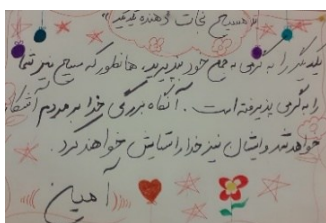 "مسیح نجات دهنده
یکدیگر را به گرمی به جمع خود بپذیرید، همانطور که مسیح نیز شما
را به گرمی پذیرفته است. آنگاه بزرگی خدا بر مردم آشکار
خواهد شد و ایشان نیز خدا را ستایش خواهند کرد.
آمین